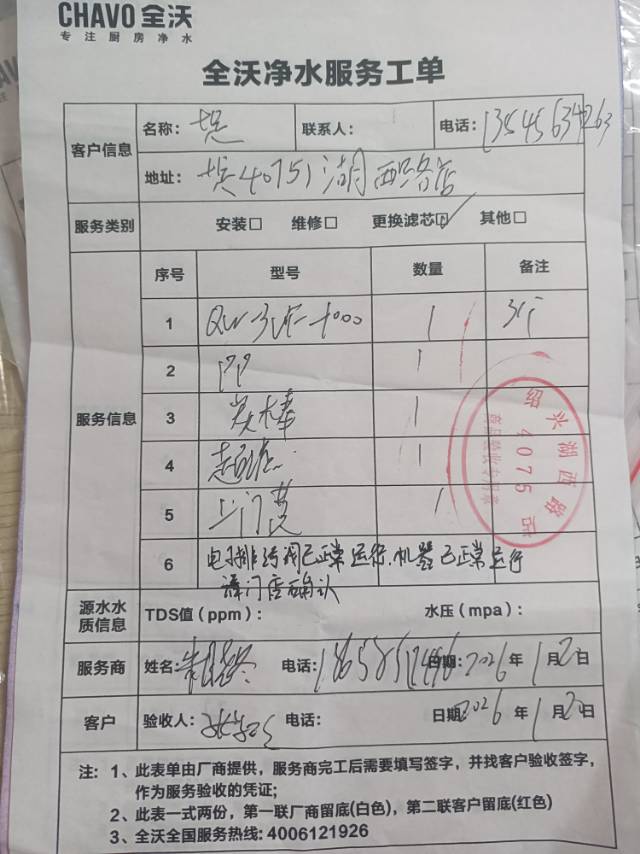 CHAVO全沃
专注厨房净水
全沃净水服务工单
客户信息
名称：
联系人：
电话：13545634263
地址： 40751湖西路店
服务类别
安装□ 维修□ 更换滤芯☑ 其他□
服务信息
序号 型号 数量 备注
1 1 3个
2 PP 1
3 炭棒 1
4 1
5 上门费 1
6 电子排污阀已正常运行.机器已正常运行
请门店确认
绍兴湖西路店
4075
源水水质信息
TDS值（ppm）： 水压（mpa）：
服务商
姓名： 电话： 日期：2026年1月20日
客户
验收人： 电话： 日期：2026年1月20日
注：1、此表单由厂商提供，服务商完工后需要填写签字，并找客户验收签字，
作为服务验收的凭证；
2、此表一式两份，第一联厂商留底(白色)，第二联客户留底(红色)
3、全沃全国服务热线：4006121926